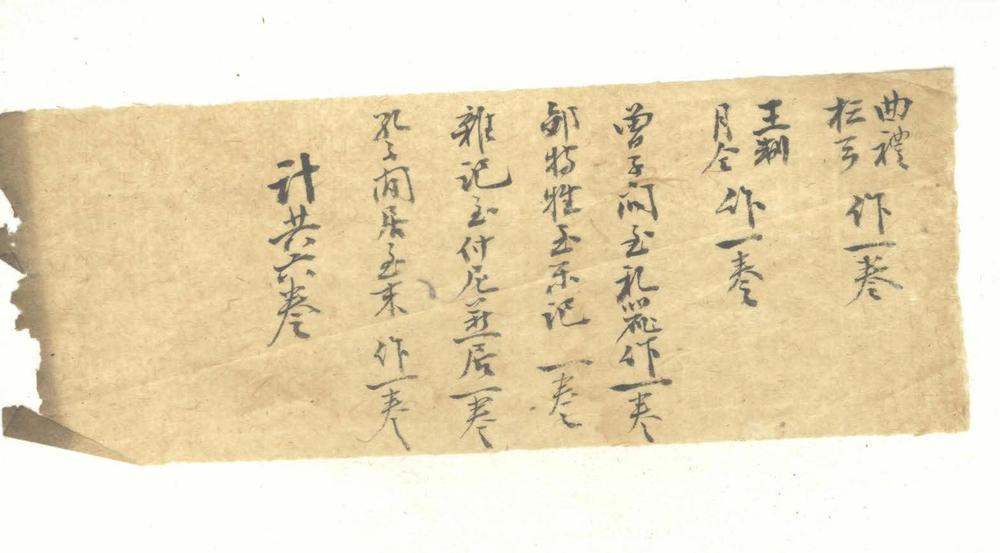 曲禮
檀弓 作一卷
王制
月令 作一卷
曾子问至礼器作一卷
郊特牲至乐记 一卷
雜记至仲尼燕居一卷
孔子闲居至末 作一卷
计共六卷